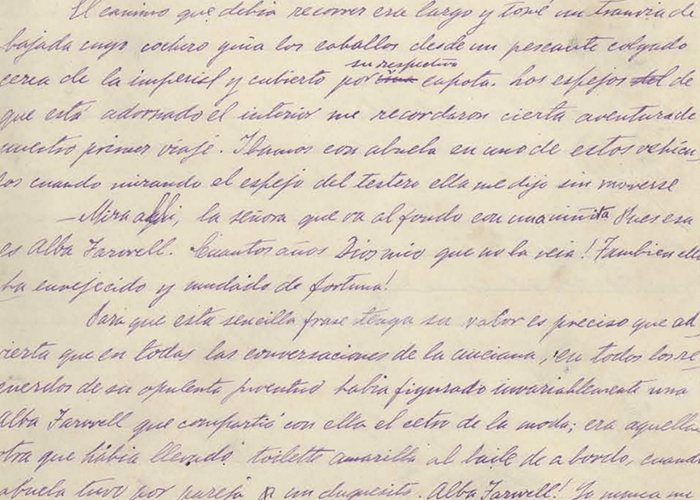 El camino que debia recorrer era largo y tomé un tranvia de
bajada cuyo cochero guia los caballos desde un pescante colgado
su respectivo
cerca de la imperial y cubierto por capota. Los espejos de
que está adornado el interior me recordaron cierta aventura de
nuestro primer viaje. Ibamos con abuela en uno de estos vehícu
los cuando mirando el espejo del testero ella me dijo sin moverse
— Mira alli, la señora que va al fondo con una niñita Pues esa
es Alba Farwell. Cuantos años Dios mio que no la veia! Tambien ella
ha envejecido y mudado de fortuna!
Para que esta sencilla frase tenga su valor es preciso que ad
vierta que en todas las conversaciones de la anciana, en todos los re
cuerdos de su opulenta juventud habia figurado invariablemente una
Alba Farwell que compartió con ella el cetro de la moda; era aquella
otra que habia llevado toilette amarilla al baile de a bordo, cuando
abuela tuvo por pareja á un duquesito. Alba Farwell! Yo nunca me